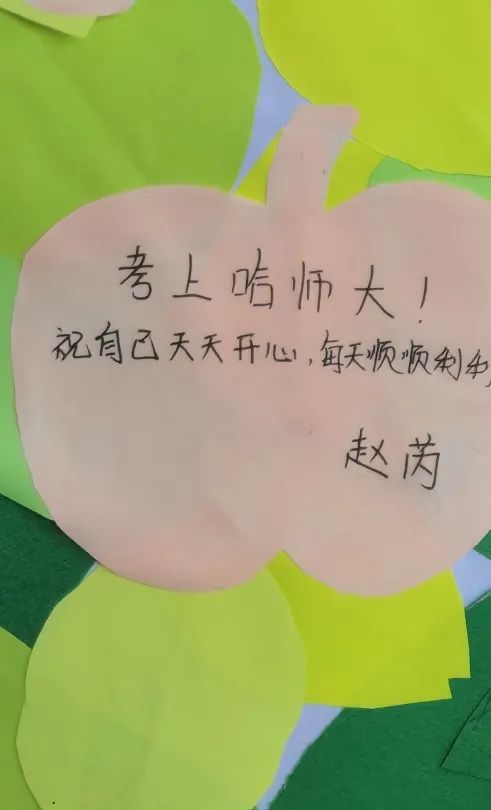 考上哈师大！
祝自己天天开心，每天顺顺利利
赵芮